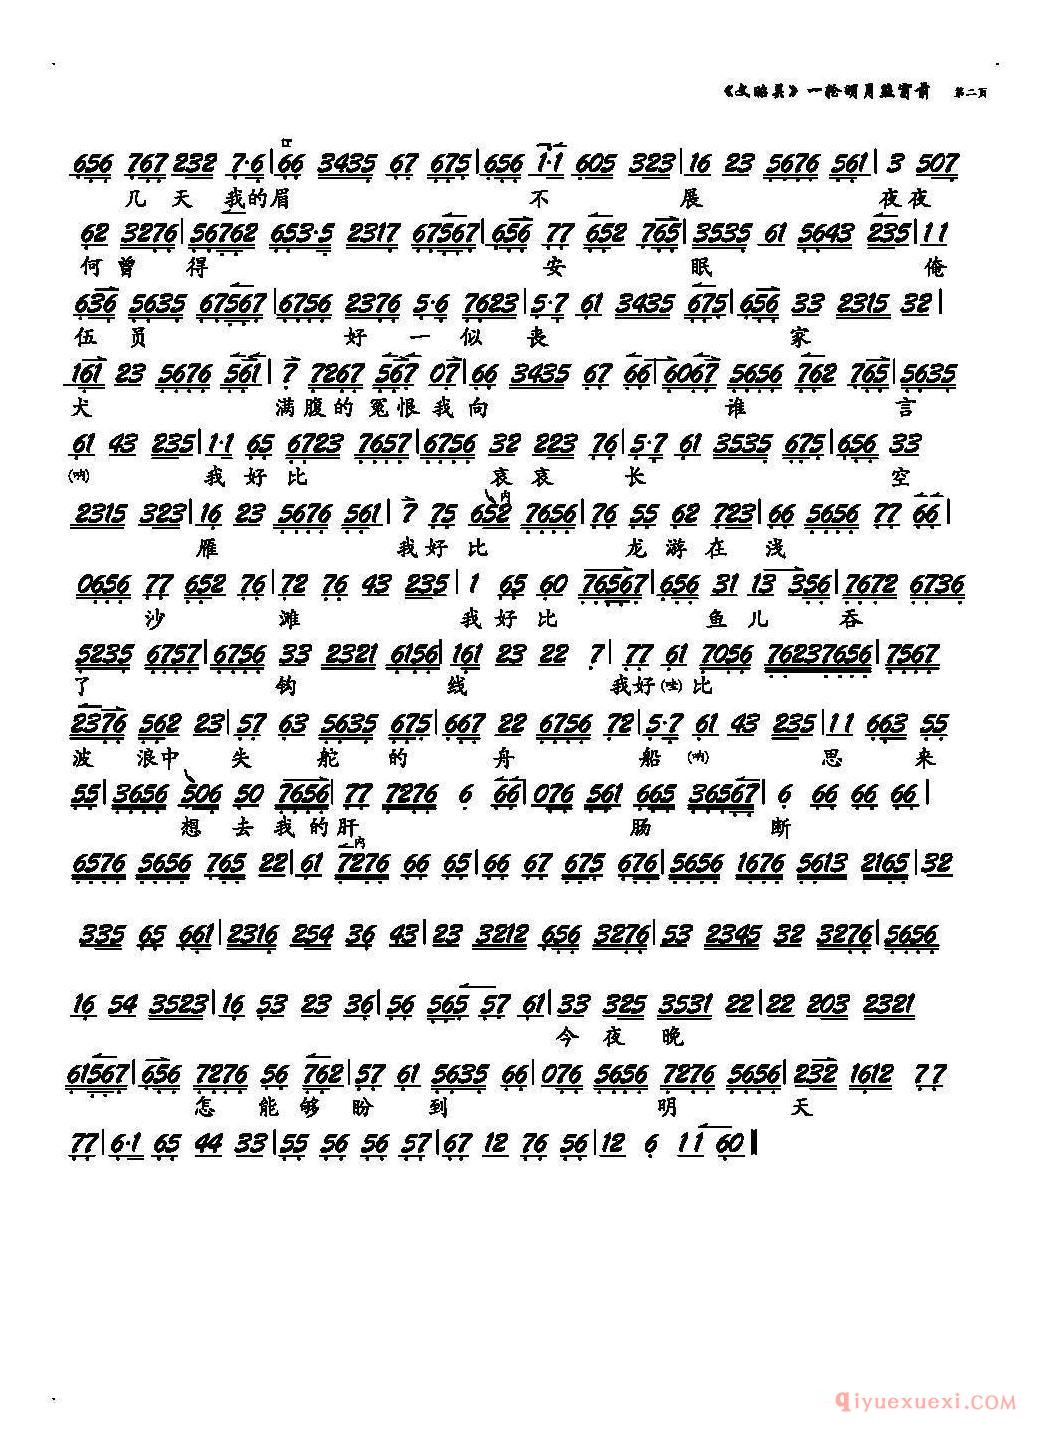 《文昭关》一轮明月照窗前 第二页
656 767 232 7·6|66 3435 67 675|656 1·1 605 323|16 23 5676 561|3 507
几 天 我的眉 不 展 夜夜
62 3276|56762 653·5 2317 67567|656 77 652 765|3535 61 5643 235|11
何 曾 得 安 眠 俺
636 5635 67567|6756 2376 5·6 7623|5·7 61 3435 675|656 33 2315 32|
伍 员 好 一 似 丧 家
161 23 5676 561|7 7267 567 07|66 3435 67 66|6067 5656 762 765|5635
犬 满腹的 冤恨我向 谁 言
61 43 235|1·1 65 6723 7657|6756 32 223 76|5·7 61 3535 675|656 33
(呐) 我 好 比 哀 哀 长 空
内
2315 323|16 23 5676 561|7 75 652 7656|76 55 62 723|66 5656 77 66|
雁 我好 比 龙 游 在 浅
0656 77 652 76|72 76 43 235|1 65 60 76567|656 31 13 356|7672 6736
沙 滩 我 好 比 鱼 儿 吞
5235 6757|6756 33 2321 6156|161 23 22 7|77 61 7056 76237656|7567
了 钩 线 我好(哇)比
2376 562 23|57 63 5635 675|667 22 6756 72|5·7 61 43 235|11 663 55
波 浪中 失 舵 的 舟 船 (呐) 思 来
55|3656 506 50 7656|77 7276 6 66|076 561 665 36567|6 66 66 66|
想 去 我 的 肝 肠 断
内
6576 5656 765 22|61 7276 66 65|66 67 675 676|5656 1676 5613 2165|32
335 65 661|2316 254 36 43|23 3212 656 3276|53 2345 32 3276|5656
16 54 3523|16 53 23 36|56 565 57 61|33 325 3531 22|22 203 2321
今 夜 晚
61567|656 7276 56 762|57 61 5635 66|076 5656 7276 5656|232 1612 77
怎 能 够 盼 到 明 天
77|6·1 65 44 33|55 56 56 57|67 12 76 56|12 6 11 60‖
qiyuexuexi.COM